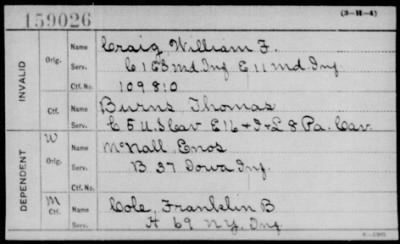 159026
(3-H-4)
INVALID
Orig.
Name Craig, William F.
Serv. C 1 E S Md Inf E 11 Md Inf
Ctf. No. 109810
Ctf.
Name Burns, Thomas
Serv. C 5 U.S Cav E 16 + I + L 8 Pa. Cav
DEPENDENT
W
Orig.
Name McNall, Enos
Serv. B 37 Iowa Inf.
Ctf. No.
M
Ctf.
Name Cole, Franklin B
Serv. H 69 N.Y. Inf